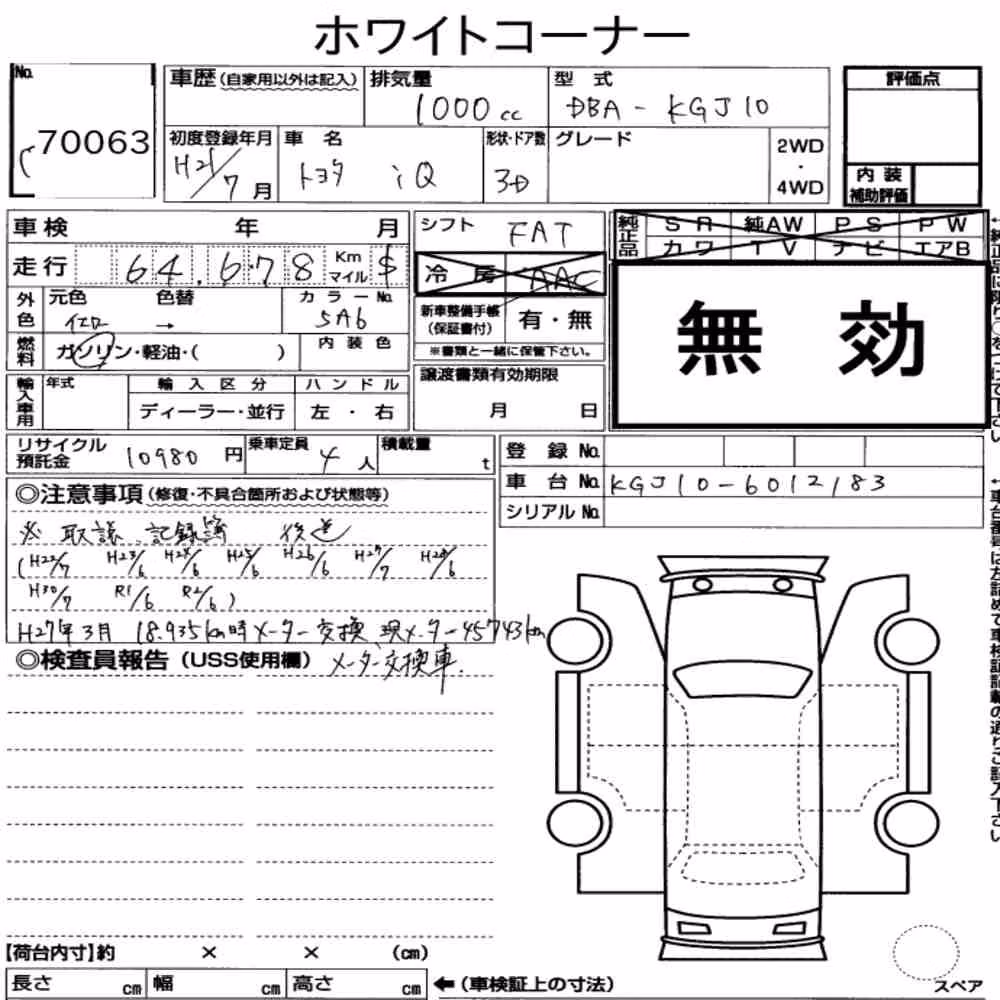 ホワイトコーナー
No. 70063
車歴(自家用以外は記入) 排気量 1000cc 型式 DBA-KGJ10 評価点
初度登録年月 H21/7月 車名 トヨタ iQ 形状・ドア数 3D グレード 2WD・4WD 内装補助評価
車検 年 月 シフト FAT 純正品 SR 純AW PS PW
走行 64,678 Km マイル $ 冷房 AAC カワ TV ナビ エアB
外色 元色 色替 → カラーNo. 5A6 新車整備手帳(保証書付) 有・無
無効
燃料 ガソリン・軽油・( ) 内装色 ※書類と一緒に保管下さい。
輸入車用 年式 輸入区分 ハンドル 譲渡書類有効期限
ディーラー・並行 左・右 月 日
リサイクル預託金 10980円 乗車定員 4人 積載量 t 登録No.
車台No. KGJ10-6012183
シリアルNo.
◎注意事項(修復・不具合箇所および状態等)
取説、記録簿 後送
(H22/7 H23/6 H24/6 H25/6 H26/6 H27/7 H28/6
H30/7 R1/6 R2/6)
H27年3月 18,935km時メーター交換 現メーター45743km
◎検査員報告(USS使用欄) メーター交換車.
【荷台内寸】約 × × (cm)
長さ cm 幅 cm 高さ cm ←(車検証上の寸法)
スペア